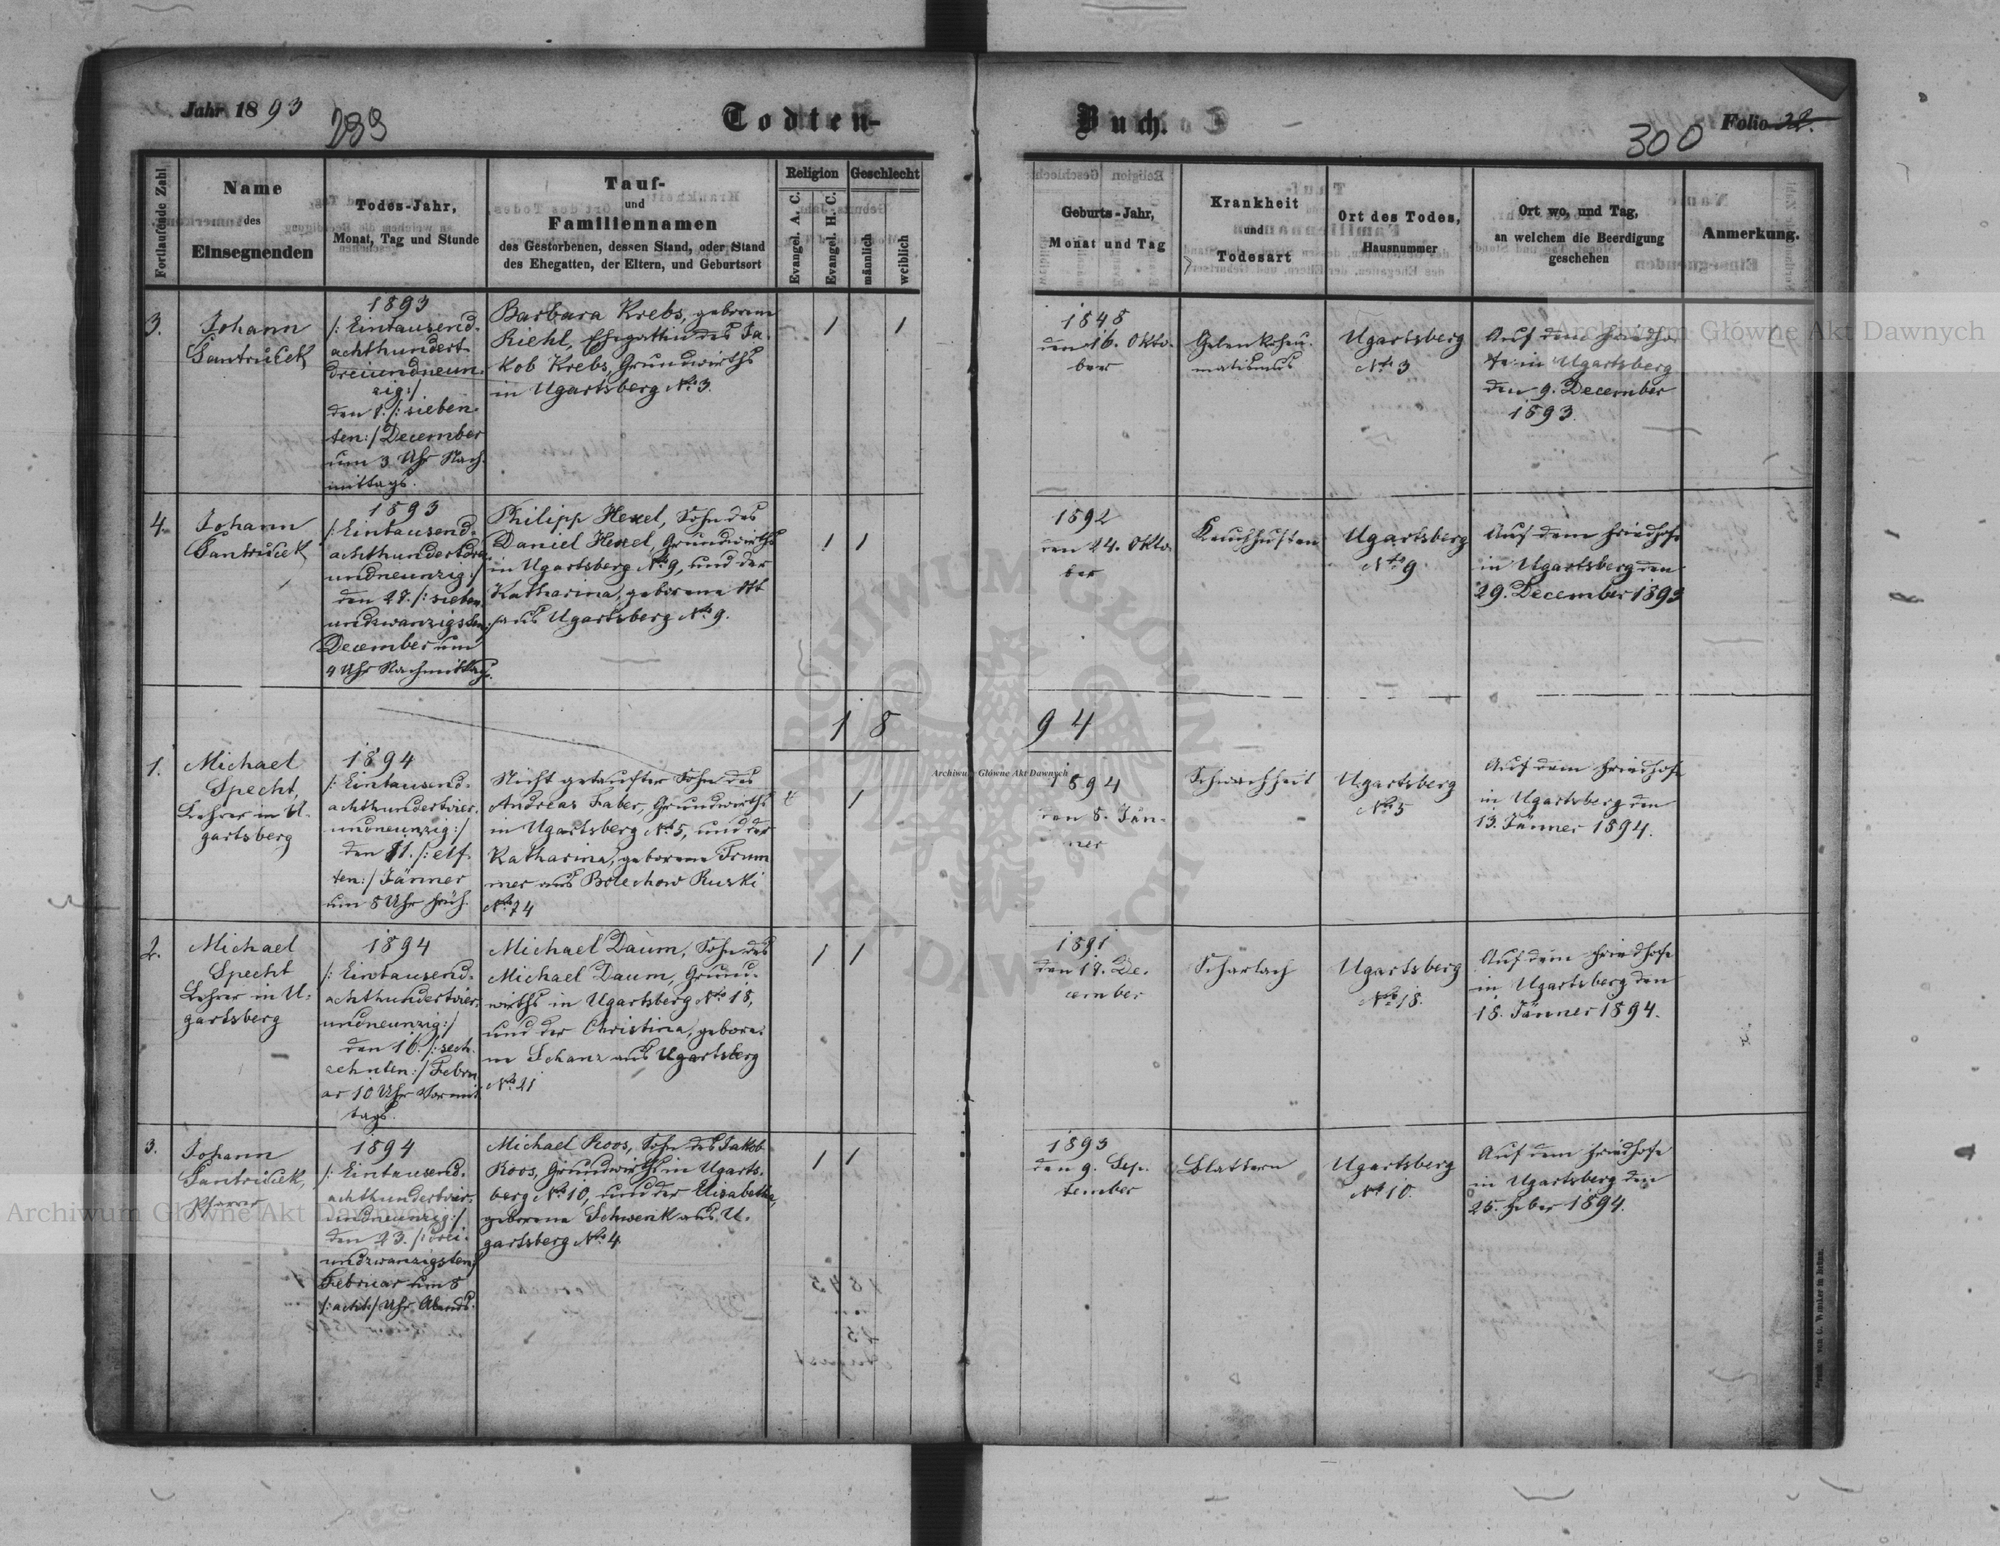 Jahr 1893
299
Todten-
Buch.
300
Folio 22.
Fortlaufende Zahl
Name
des
Einsegnenden
Todes-Jahr,
Monat, Tag und Stunde
Tauf-
und
Familiennamen
des Gestorbenen, dessen Stand, oder Stand
des Ehegatten, der Eltern, und Geburtsort
Religion
Evangel. A. C.
Evangel. H. C.
Geschlecht
männlich
weiblich
Geburts-Jahr,
Monat und Tag
Krankheit
und
Todesart
Ort des Todes,
Hausnummer
Ort wo, und Tag,
an welchem die Beerdigung
geschehen
Anmerkung.
3.
Johann
Santruček
1893
/: Eintausend-
achthundert
dreiundneun-
zig :/
den 7. /: sieben-
ten :/ December
um 3 Uhr Nach-
mittags.
Barbara Krebs, geborene
Riehl, Ehegattin des Ja-
kob Krebs, Grundwirths
in Ugartsberg No 3.
1
1
1848
den 16. Okto-
ber
Gelenkrheu-
matismus
Ugartsberg
No 3
Auf dem Friedho-
fe in Ugartsberg
den 9. December
1893.
4.
Johann
Santruček
1893
/: Eintausend-
achthundertdrei
undneunzig :/
den 27. /: sieben
undzwanzigsten :/
December um
4 Uhr Nachmittags.
Philipp Hexel, Sohn des
Daniel Hexel, Grundwirths
in Ugartsberg No 9, und der
Katharina, geborene Ott
aus Ugartsberg No 9.
1
1
1892
den 24. Okto-
ber
Keuchhusten
Ugartsberg
No 9
Auf dem Friedhofe
in Ugartsberg den
29. December 1893
1894
1.
Michael
Specht,
Lehrer in U-
gartsberg
1894
/: Eintausend-
achthundertvier-
undneunzig :/
den 11. /: elf-
ten :/ Jänner
um 8 Uhr früh.
Nicht getaufter Sohn des
Andreas Faber, Grundwirths
in Ugartsberg No 5, und der
Katharina, geborene Trum
mer aus Bolechow Ruski
No 74
1
1894
den 8. Jän-
ner
Schwachheit
Ugartsberg
No 5
Auf dem Friedhofe
in Ugartsberg den
13. Jänner 1894.
2.
Michael
Specht
Lehrer in U-
gartsberg
1894
/: Eintausend-
achthundertvier-
undneunzig :/
den 16. /: sech-
zehnten :/ Febru
ar 10 Uhr Vormit
tags.
Michael Daum, Sohn des
Michael Daum, Grund-
wirths in Ugartsberg No 18,
und der Christina, gebore-
ne Schanz aus Ugartsberg
No 21
1
1
1891
den 17. De-
cember
Scharlach
Ugartsberg
No 18.
Auf dem Friedhofe
in Ugartsberg den
18. Jänner 1894.
3.
Johann
Santruček,
Pfarrer
1894
/: Eintausend-
achthundertvier-
undneunzig :/
den 23. /: drei-
undzwanzigsten :/
Februar um 8
/: acht :/ Uhr Abends.
Michael Roos, Sohn des Jakob
Roos, Grundwirths in Ugarts-
berg No 10, und der Elisabetha,
geborene Schwenk aus U-
gartsberg No 4
1
1
1893
den 9. Sep-
tember
Blattern
Ugartsberg
No 10.
Auf dem Friedhofe
in Ugartsberg den
25. Feber 1894.
Archiwum Główne Akt Dawnych
Archiwum Główne Akt Dawnych
Archiwum Główne Akt Dawnych
ARCHIWUM GŁÓWNE AKT DAWNYCH